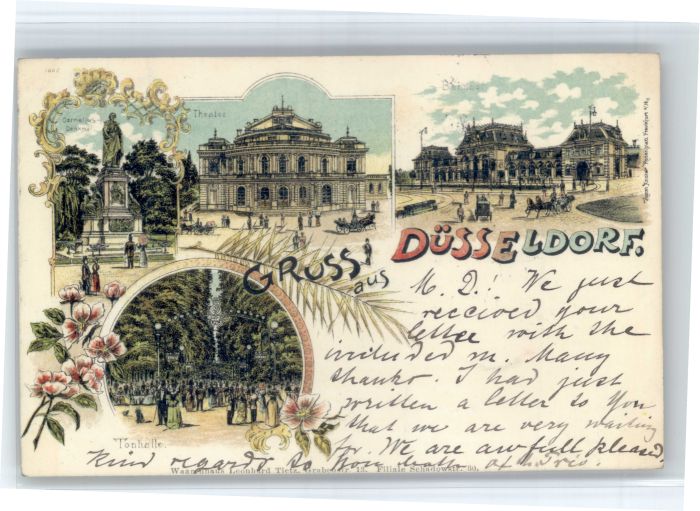 Cornelius-
Denkmal
Theater
GRUSS aus DÜSSELDORF.
M. D.! We just
reccived your
letter with the
included m. Many
thanks. I had just
written a letter to You
that we are very waiting
for. We are awfull pleased,
Kind regards to You both
Tonhalle.
Waarenhaus Leonhard Tietz, Grabenstr. 13. Filiale Schadowstr. 30.